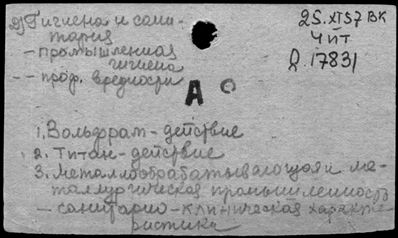 2) Гигиена и сани-
тария
25.XI57 ВК
4 йт
Д.17831
- промышленная
гигиена
-- проф. вредности
А
1. Вольфрам - действие
2. Титан - действие
3. Металлообрабатывающая и ме-
таллургическая промышленность
- санитарно - клиническая характе
ристика